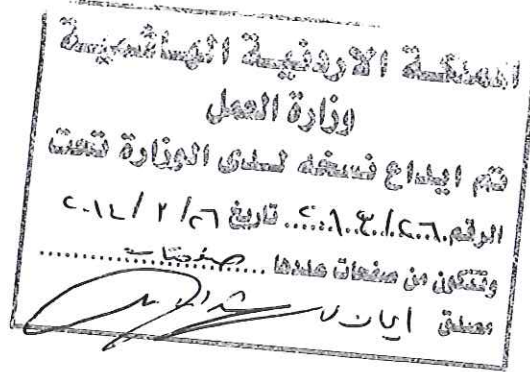 المملكة الاردنية الهاشمية
وزارة العمل
تم ايداع نسخه لدى الوزارة تحت
الرقم تاريخ ٢٦ / ٢ / ٢٠١٤
وتتكون من صفحات عددها صفحتان
مصدق ايمان